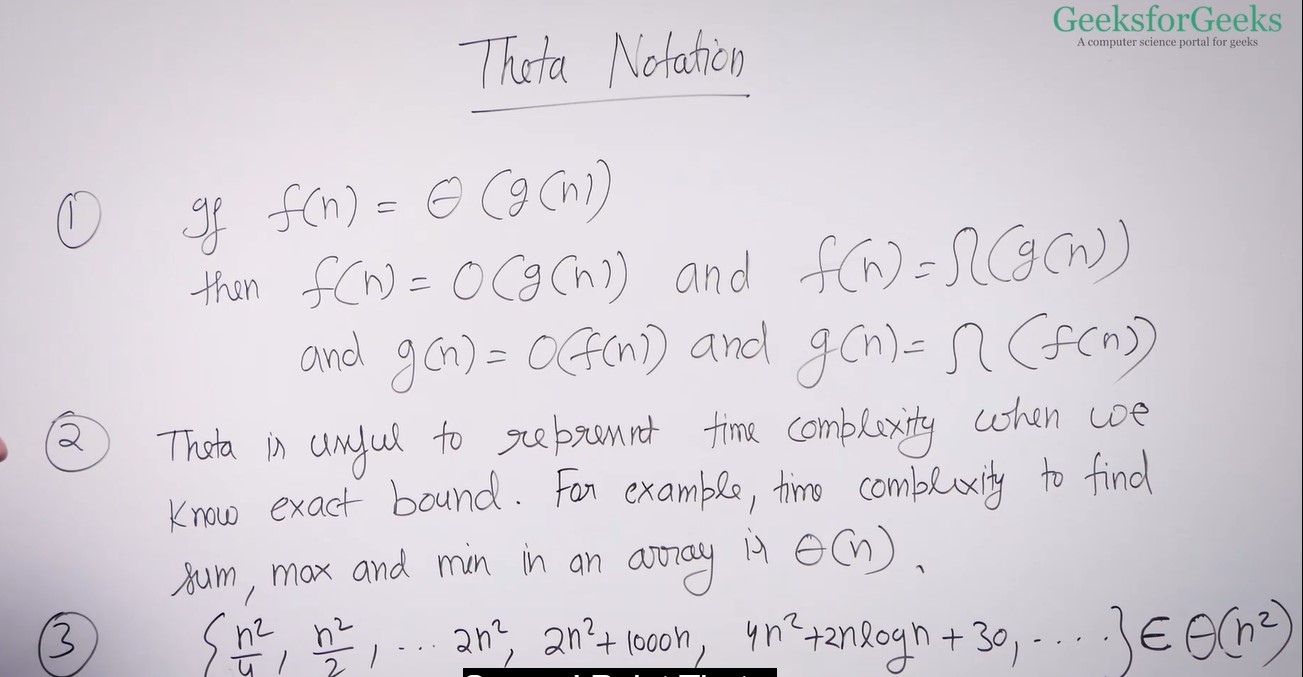 GeeksforGeeks
A computer science portal for geeks
Theta Notation
① If f(n) = Θ (g(n))
then f(n) = O(g(n)) and f(n) = Ω(g(n))
and g(n) = O(f(n)) and g(n) = Ω (f(n))
② Theta is useful to represent time complexity when we
know exact bound. For example, time complexity to find
sum, max and min in an array is Θ(n).
③ {n²/4, n²/2, ... 2n², 2n²+1000n, 4n²+2nlogn+30, ....} ∈ Θ(n²)